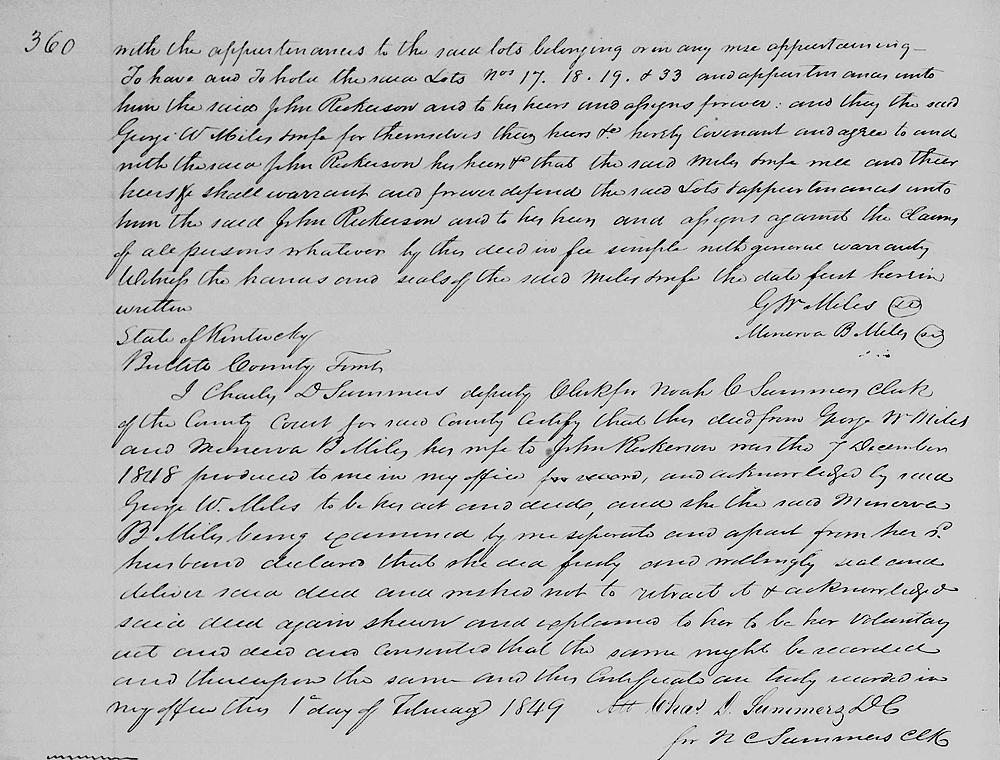 360
with the appurtenances to the said lots belonging or in any wise appertaining—
To have and To hold the said Lots Nos 17. 18. 19. & 33 and appurtenances unto
him the said John Rickerson and to his heirs and assigns forever: and they the said
George W Miles & wife for themselves they heirs &c hereby covenant and agree to and
with the said John Rickerson his heirs &c that the said Miles & wife will and their
heirs &c shall warrant and forever defend the said Lots & appurtenances unto
him the said John Rickerson and to his heirs and assigns against the claims
of all persons whatever by this deed in fee simple with general warranty
Witness the hands and seals of the said Miles & wife the date first herein
written
G W Miles
Minerva B Miles
State of Kentucky
Bullitt County
I Charles D Summers deputy Clerk for Noah C Summers Clerk
of the County Court for said County Certify that this deed from George W Miles
and Minerva B Miles his wife to John Rickerson was the 7 December
1848 produced to me in my office for record, and acknowledged by said
George W. Miles to be his act and deed, and she the said Minerva
B Miles being examined by me seperate and apart from her sd
husband declared that she did freely and willingly seal and
deliver said deed and wished not to retract it & acknowledged
said deed again shewn and explained to her to be her voluntary
act and deed and consented that the same might be recorded
and thereupon the same and this Certificate are truly recorded in
my office this 1st day of February 1849 Att Chas D. Summers D C
for N C Summers Clk